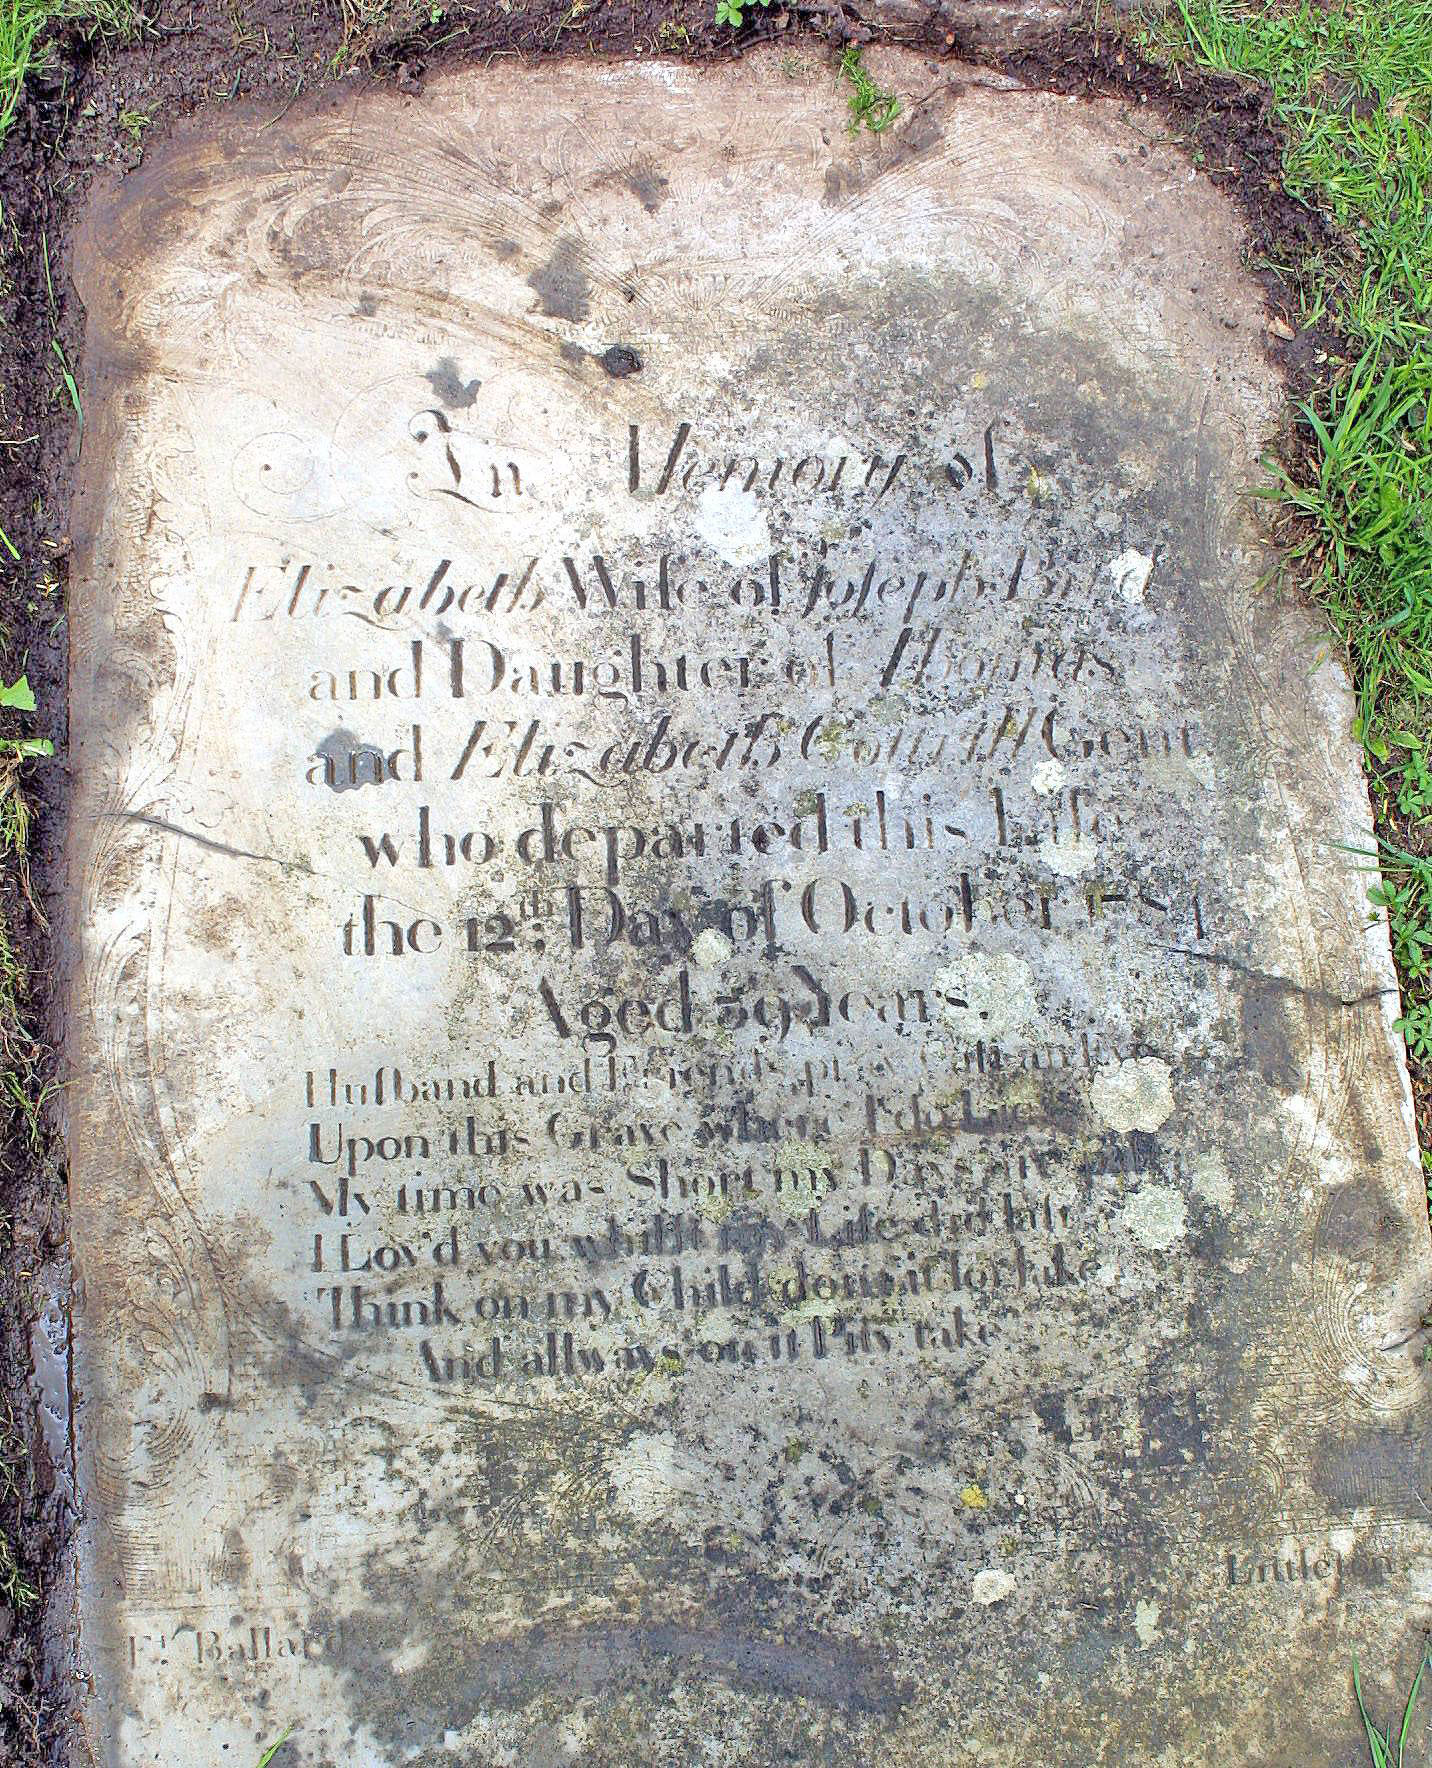 In Memory of
Elizabeth Wife of Joſeph
and Daughter of Thomas
and Elizabeth Gent
who departed this Life
the 12th: Day of October
Aged 39 Years
Huſband and Friends pray Caſt an Eye
Upon this Grave where I do Lie
My time was Short my Days are
I Lov'd you whilſt my Life did laſt
Think on my Child dont it forſake
And allways on it Pity take
Littleton
Ballard